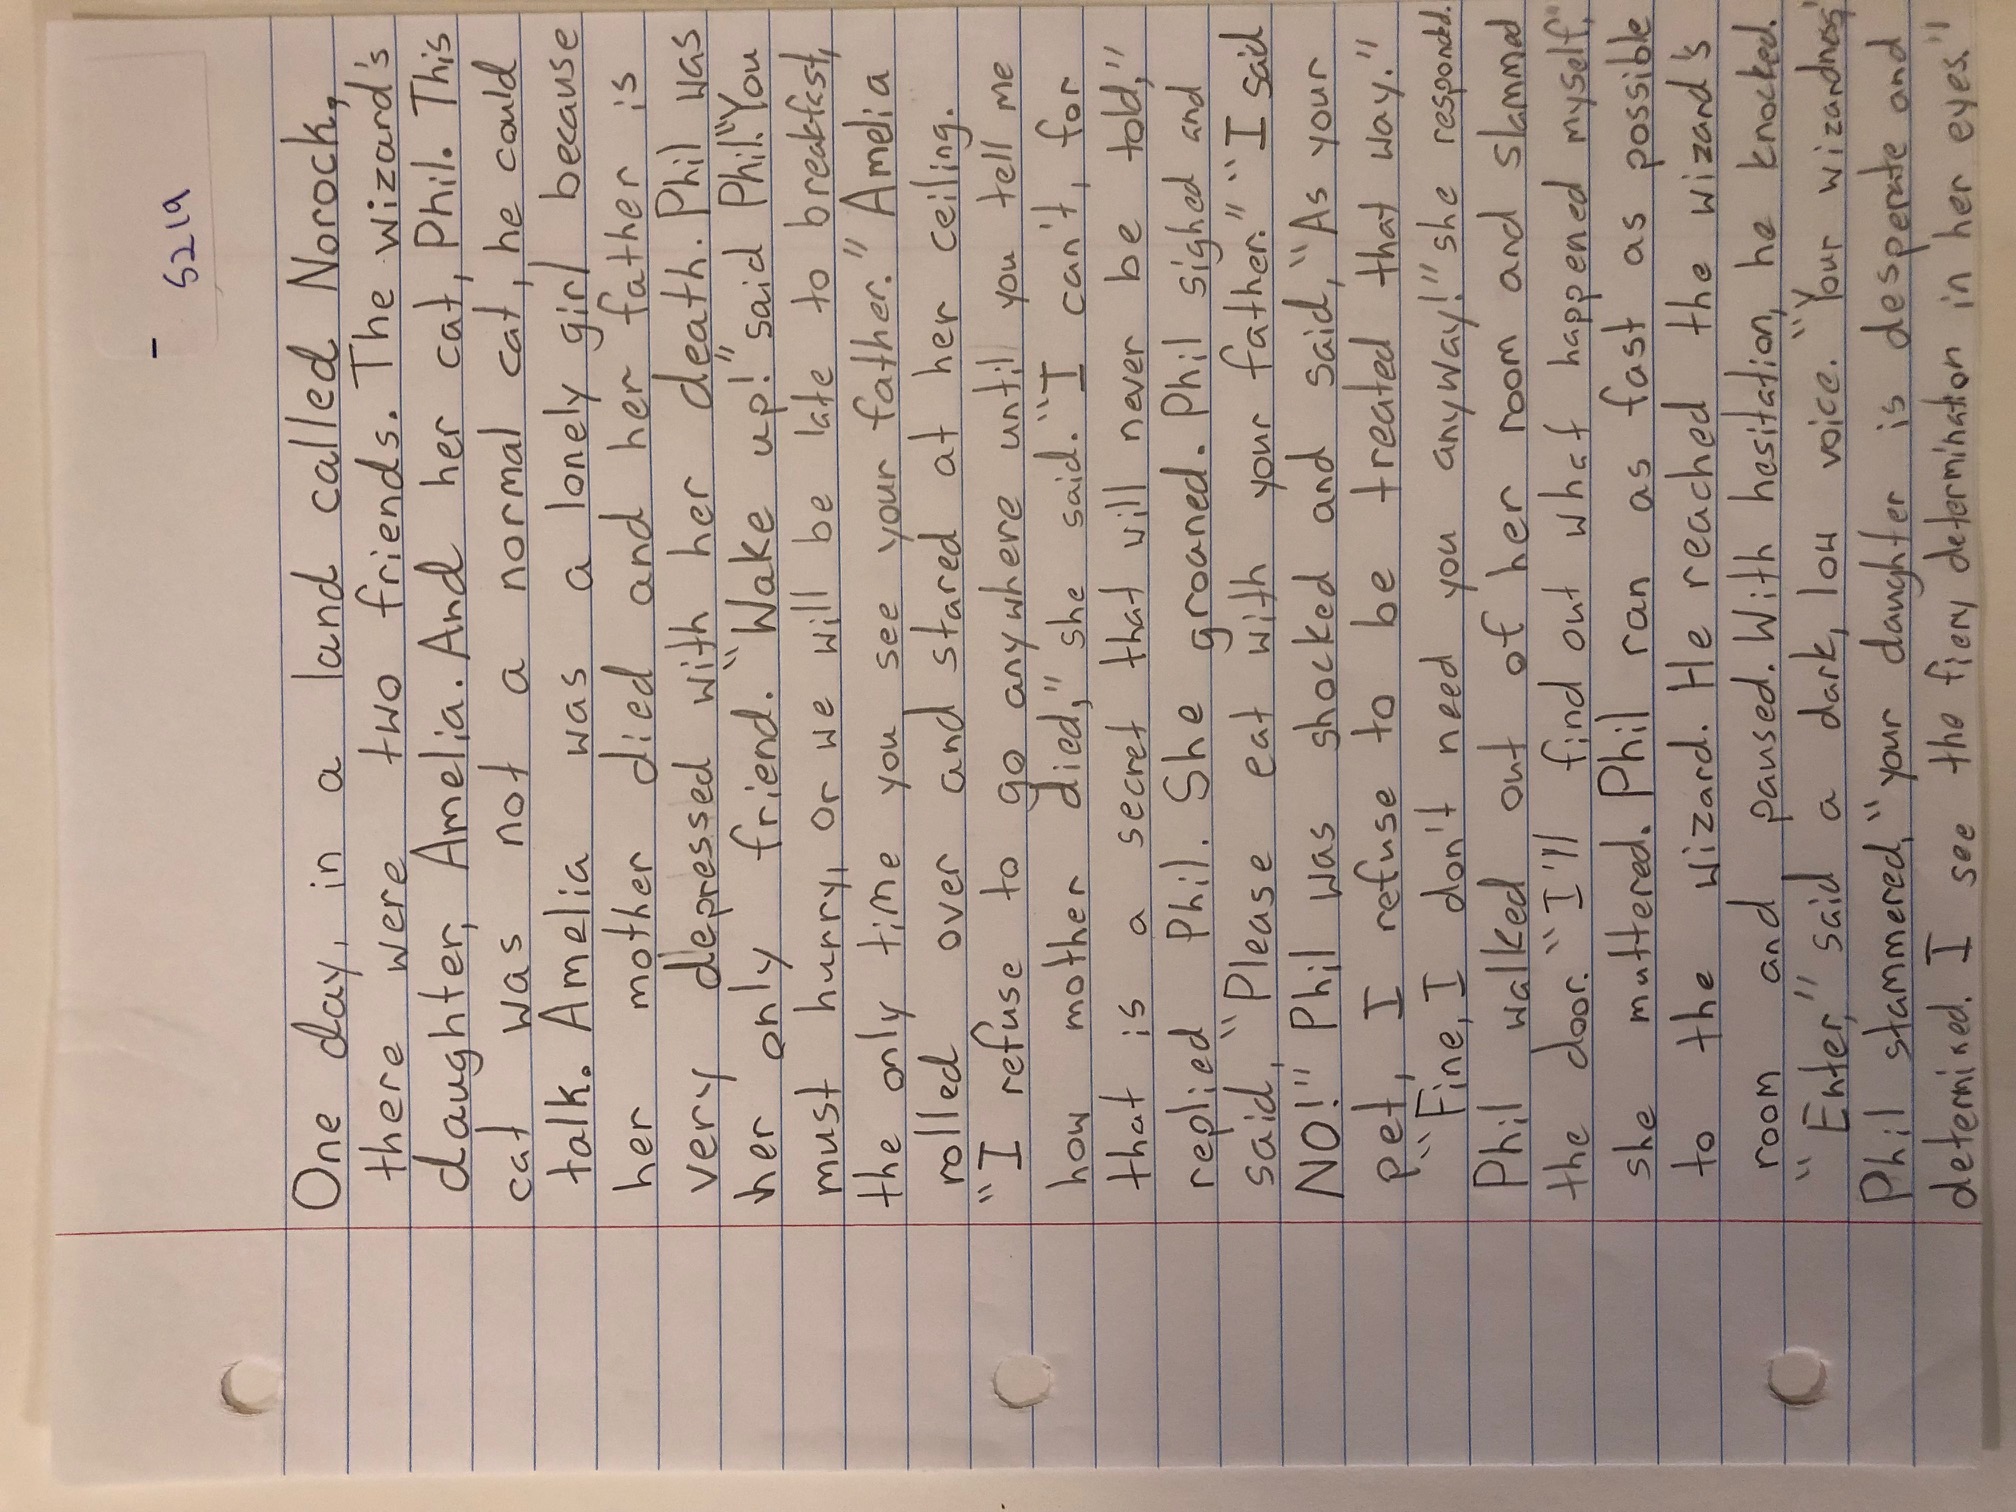 5219
One day, in a land called Norock,
there were two friends. The wizard's
daughter, Amelia. And her cat, Phil. This
cat was not a normal cat, he could
talk. Amelia was a lonely girl because
her mother died and her father is
very depressed with her death. Phil was
her only friend. "Wake up!" said Phil. "You
must hurry, or we will be late to breakfast,
the only time you see your father." Amelia
rolled over and stared at her ceiling.
"I refuse to go anywhere until you tell me
how mother died," she said. "I can't, for
that is a secret that will never be told,"
replied Phil. She groaned. Phil sighed and
said, "Please eat with your father." "I said
NO!" Phil was shocked and said, "As your
pet, I refuse to be treated that way."
"Fine, I don't need you anyway!" she responded.
Phil walked out of her room and slammed
the door. "I'll find out what happened myself,"
she muttered. Phil ran as fast as possible
to the wizard. He reached the wizard's
room and paused. With hesitation, he knocked.
"Enter," said a dark, low voice. "Your wizardness,"
Phil stammered, "your daughter is desperate and
determined. I see the fiery determination in her eyes."